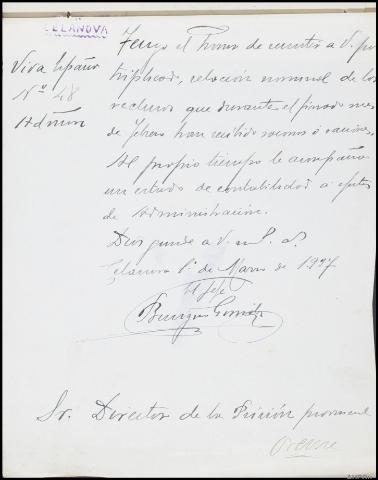 CELANOVA
Viva España
Nº 48
Admon
Tengo el honor de remitir a V. por
triplicado, relación nominal de los
reclusos que durante el pasado mes
de Febrero han recibido socorros ó raciones,
Al propio tiempo le acompaño
un estado de contabilidad a efectos
de Administración.
Dios guarde a V. m. a.
Celanova 1º de Marzo de 1937
El Jefe
Sr. Director de la Prisión provincial
Orense